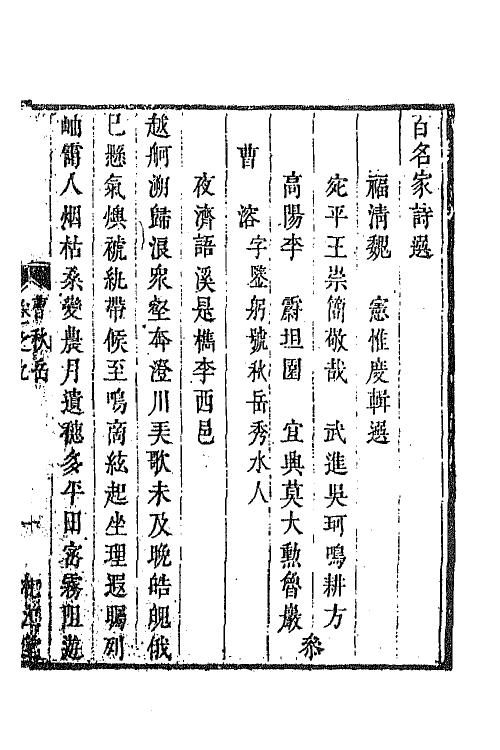 百名家詩選
福清魏 憲惟度輯選
宛平王崇簡敬哉 武進吳珂鳴耕方
高陽李 霨坦園 宜興莫大勲魯巖
參
曹 溶字鑒躬號秋岳秀水人
夜濟語溪是檇李西邑
越舸溯歸浪衆壑奔澄川芙歌未及晚皓魄俄
已懸氣燠褫紈帶候至鳴商絃起坐理遐矚列
岫窬人烟枯桑變農月遺穗多平田宻霧阻遊
曹秋岳